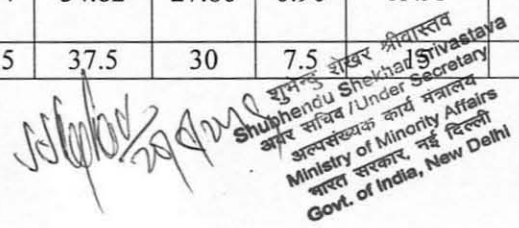 5 37.5 30 7.5 15
शुभेन्दु शेखर श्रीवास्तव
Shubhendu Shekhar Srivastava
अवर सचिव / Under Secretary
अल्पसंख्यक कार्य मंत्रालय
Ministry of Minority Affairs
भारत सरकार, नई दिल्ली
Govt. of India, New Delhi